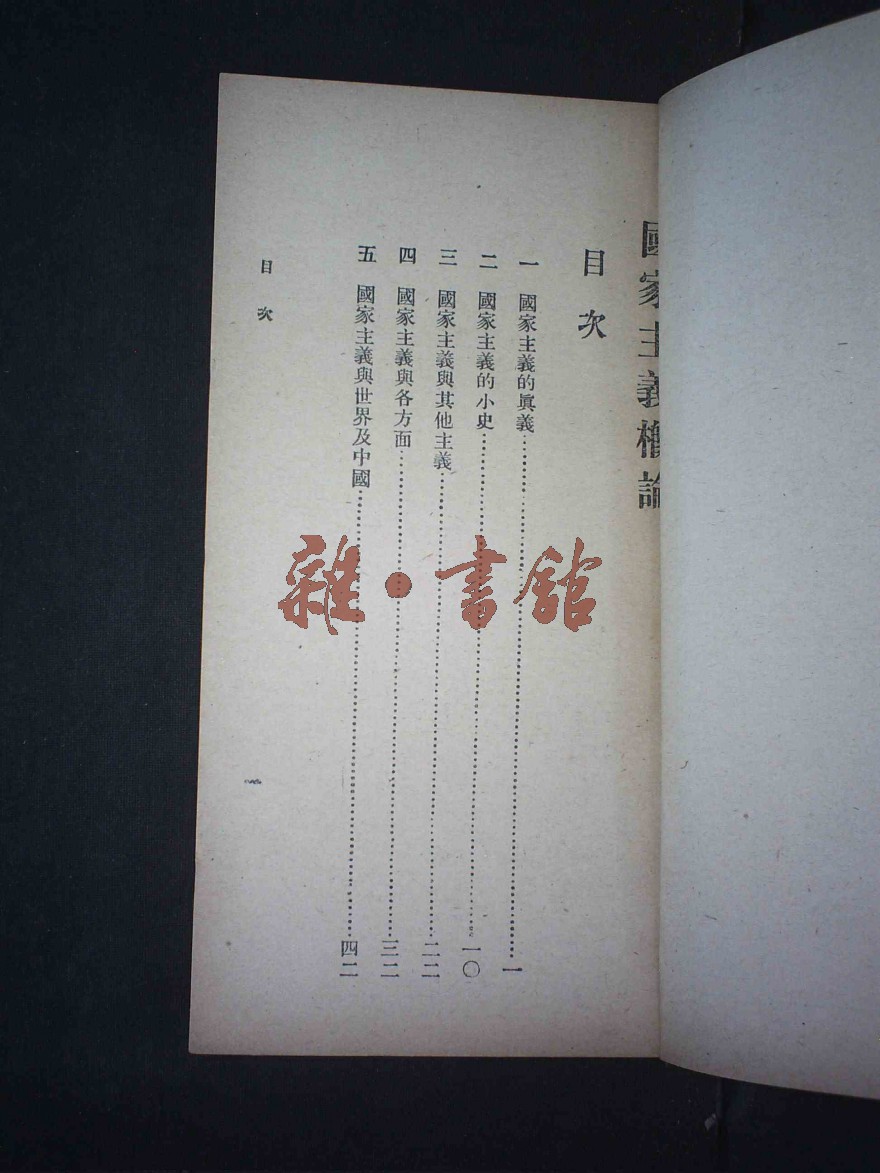 國家主義概論
目次
一 國家主義的眞義……一
二 國家主義的小史……一〇
三 國家主義與其他主義……二二
四 國家主義與各方面……三二
五 國家主義與世界及中國……四二
目次
一
雜·書館